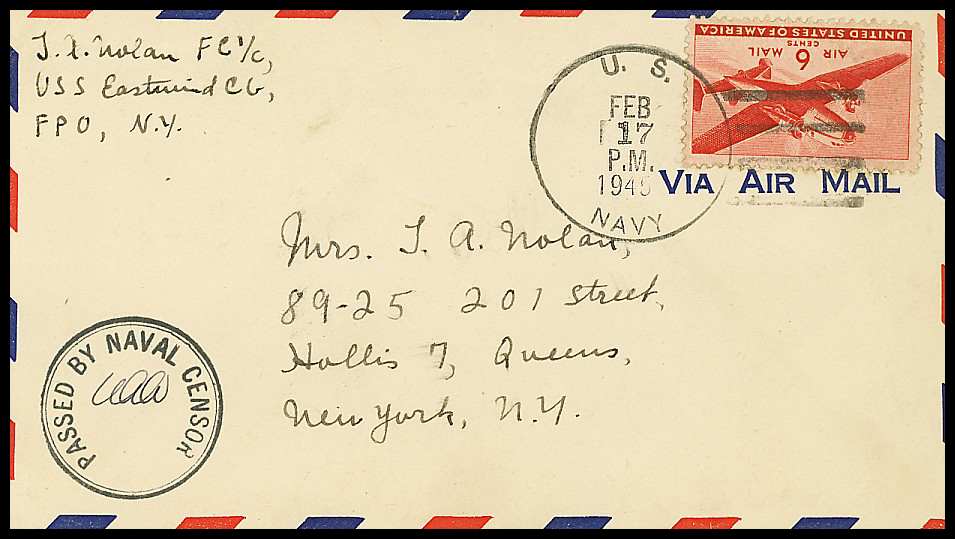 T. A. Nolan FC 1/c,
USS Eastwind CG,
FPO, N.Y.
U. S.
FEB
17
P.M.
1945
NAVY
UNITED STATES OF AMERICA
AIR 6 MAIL
CENTS
VIA AIR MAIL
Mrs. T. A. Nolan,
89-25 201 Street,
Hollis 7, Queens,
New York, N.Y.
PASSED BY NAVAL CENSOR